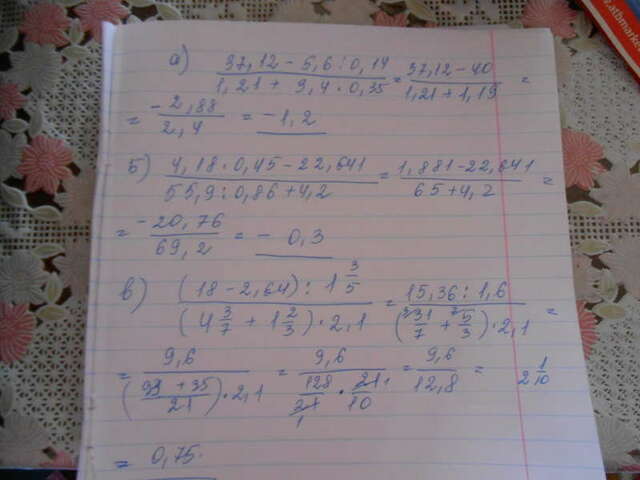 а) (37,12 - 5,6 : 0,14) / (1,21 + 3,4 · 0,35) = (37,12 - 40) / (1,21 + 1,19) =
= -2,88 / 2,4 = -1,2
б) (4,18 · 0,45 - 22,641) / (55,9 : 0,86 + 4,2) = (1,881 - 22,641) / (65 + 4,2) =
= -20,76 / 69,2 = - 0,3
в) ((18 - 2,64) : 1 3/5) / ((4 3/7 + 1 2/3) · 2,1) = (15,36 : 1,6) / ((31/7 + 5/3) · 2,1) =
= 9,6 / ((93 + 35)/21 · 2,1) = 9,6 / (128/21 · 21/10) = 9,6 / 12,8 = 2 1/10
= 0,75.